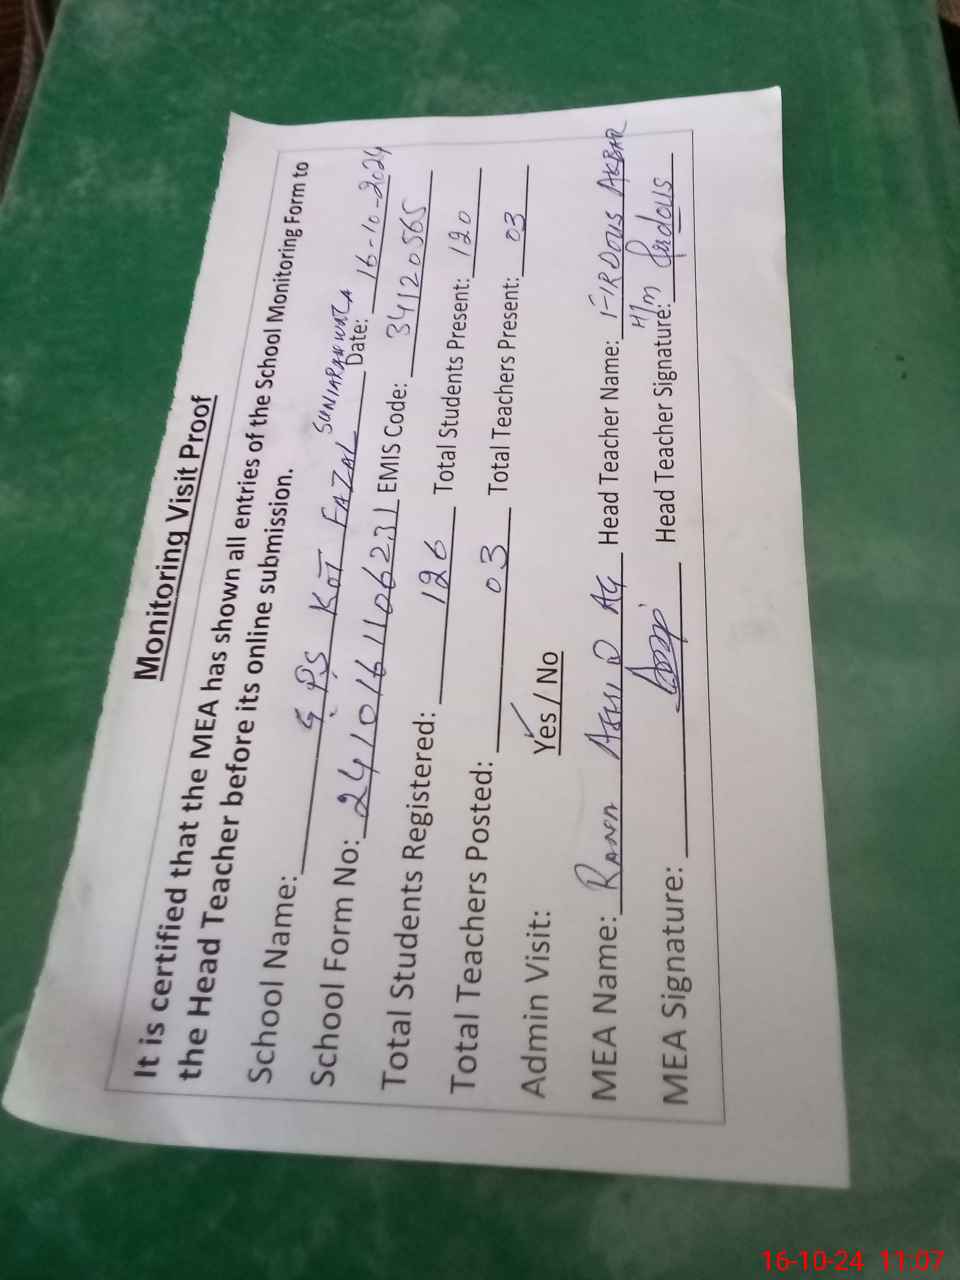 Monitoring Visit Proof
It is certified that the MEA has shown all entries of the School Monitoring Form to
the Head Teacher before its online submission.
School Name: G.P.S KOT FAZAL SUNIARANWALA Date: 16-10-2024
School Form No: 241016110623 EMIS Code: 34120565
Total Students Registered: 126 Total Students Present: 120
Total Teachers Posted: 03 Total Teachers Present: 03
Admin Visit: Yes / No
MEA Name: RANA Head Teacher Name: FIRDOUS AKBAR
MEA Signature: Head Teacher Signature: H/m firdous
16-10-24 11:07